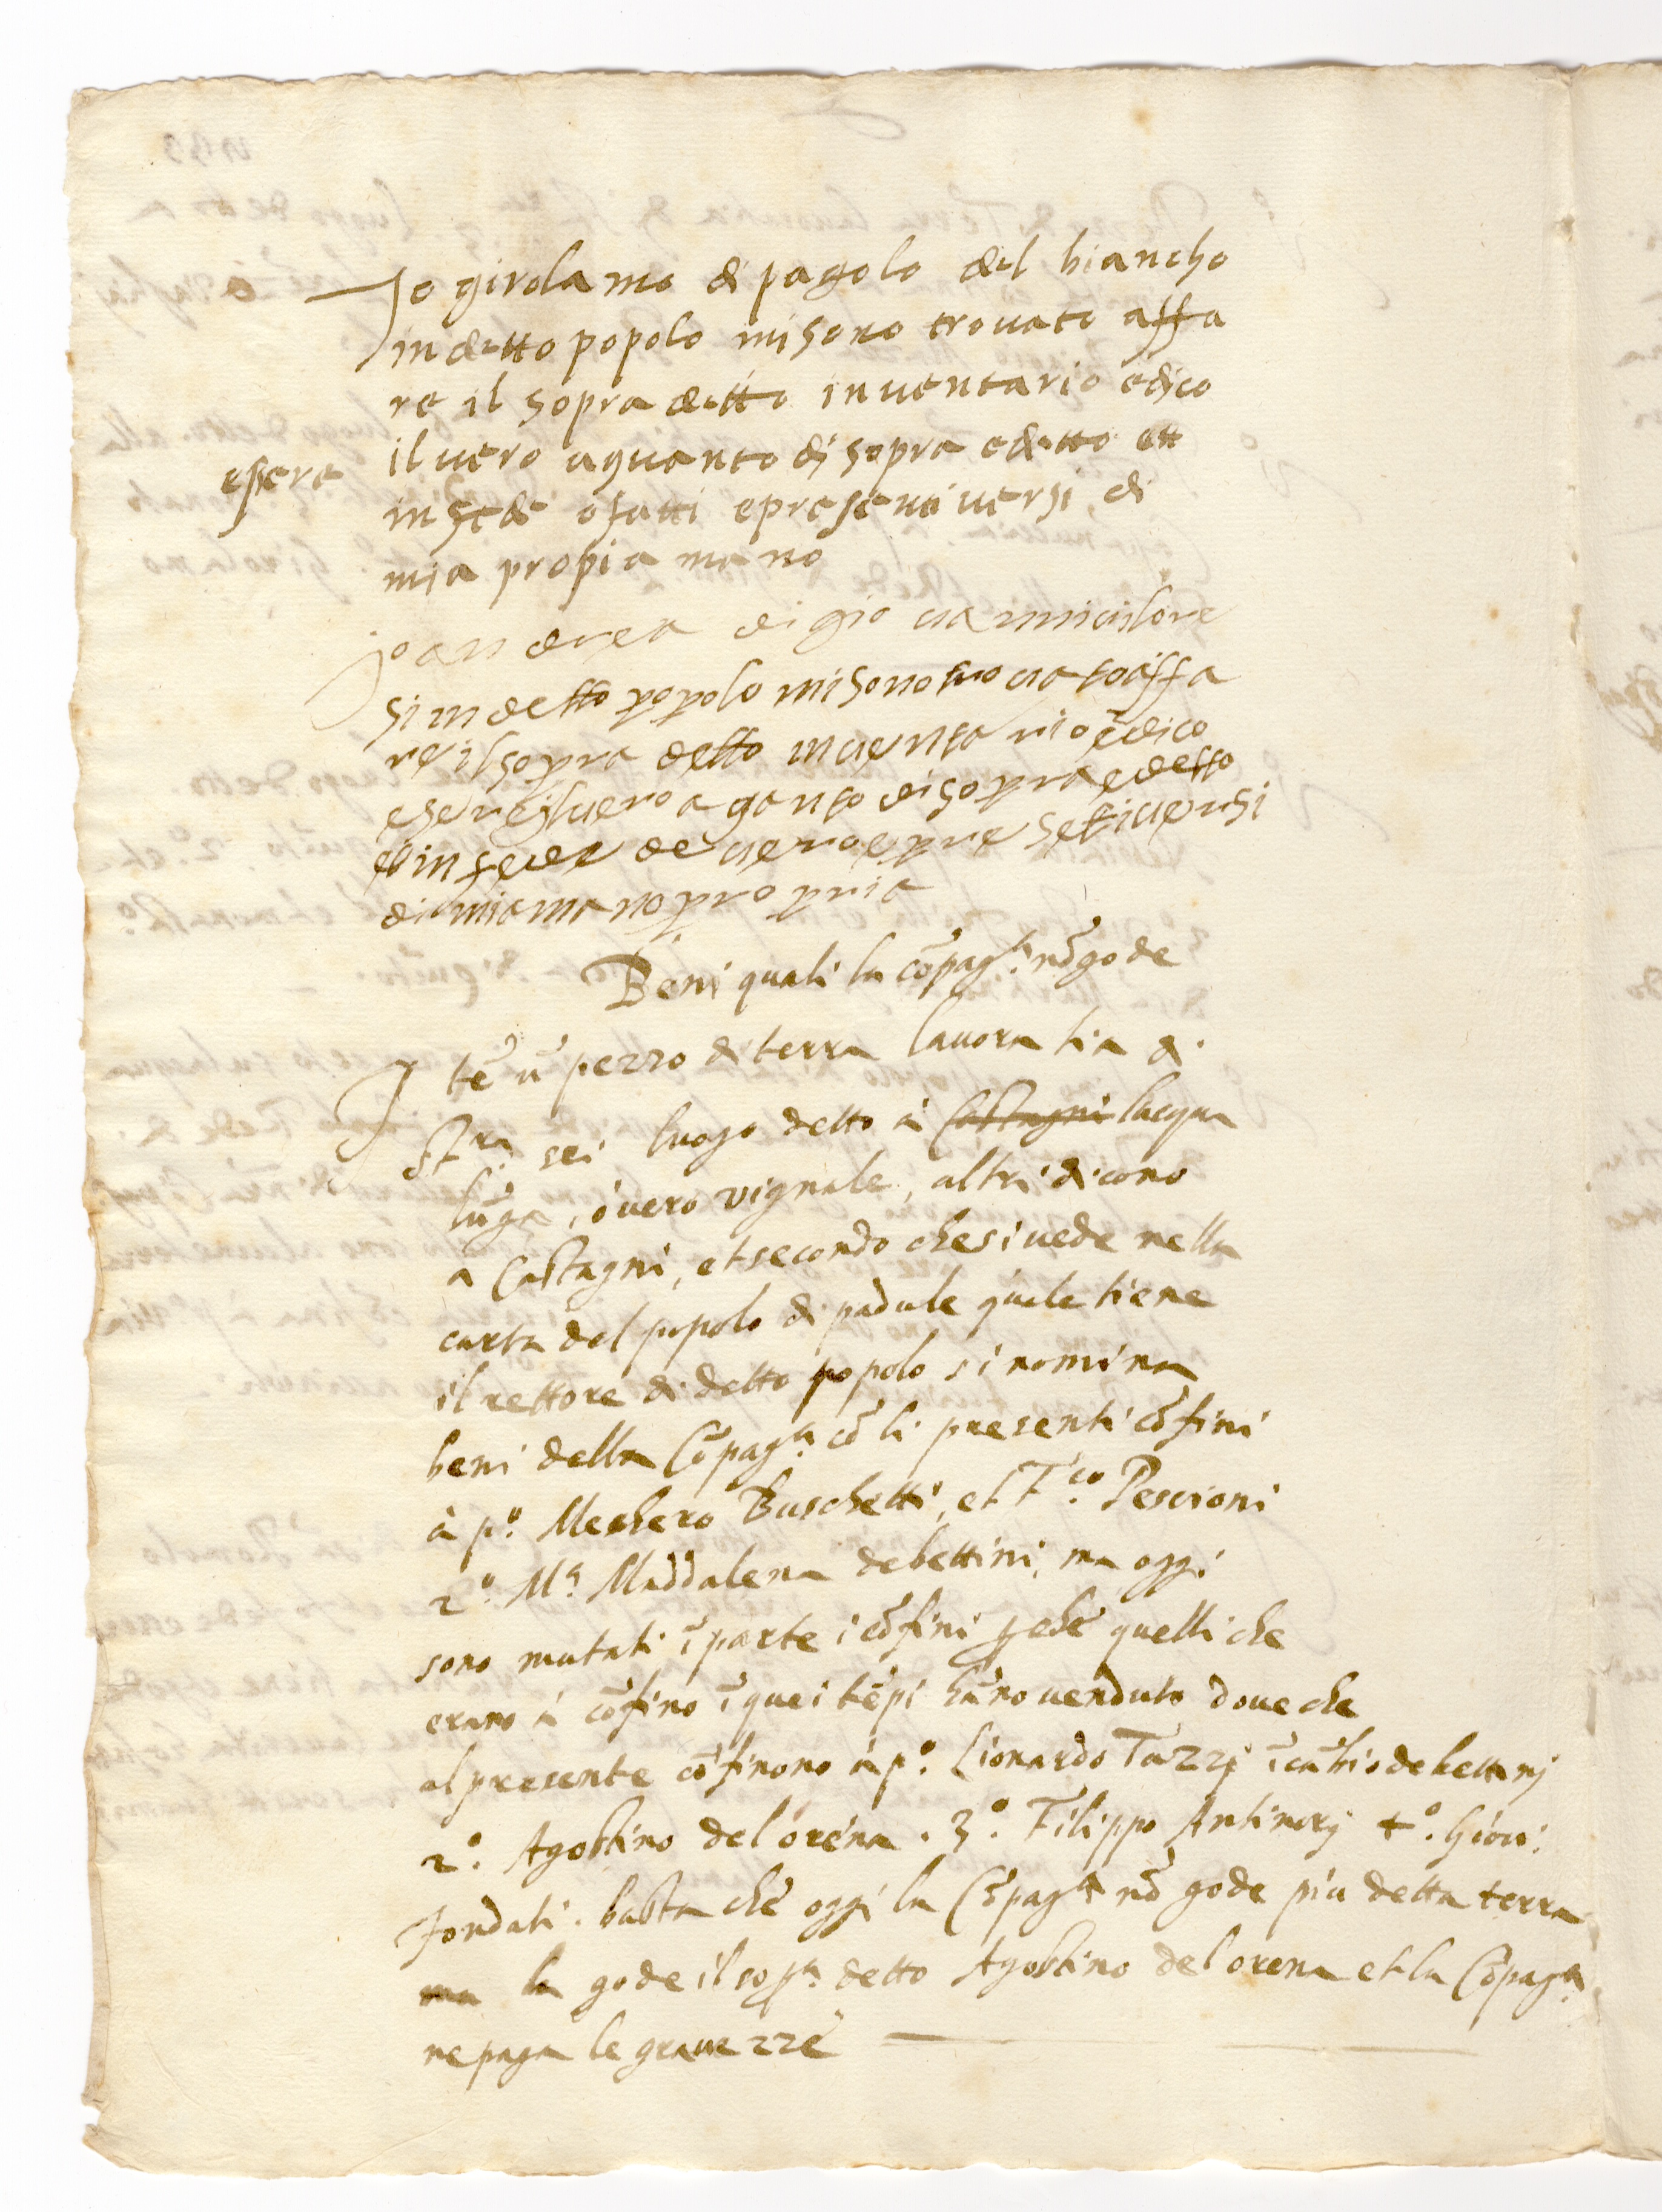 Jo girolamo di pagolo del biancho
in detto popolo mi sono trovato affa
re il sopra detto inventario e dico
essere il vero aquanto di sopra e detto ett
in fede o fatti e presenti versi di
mia propia mano
Jo andrea di gio va mi
si in detto popolo mi sono trovato affa
re il sopra detto inventario e dico
esere il vero a qanto di sopra e detto
e in fede de vero e pre seti versi
di mia mano propria
Beni quali la cōpagᵃ nō gode
Jtē ū pezzo di terra lavoratia di
stʳᵃ sei luogo detto à Castagni lacqua
lūga, óvero vignale, altri dicono
a Castagni, et secondo che si vede nella
carta del popolo di padule quale tiene
il rettore di detto popolo si nomina
beni della Cōpagᵃ cō li presenti cōfini
à pº. Meshero Buschetti, et Fᶜᵒ. Pescioni
2º. Mᵃ Maddalena de bettini, ma oggi
sono mutati ī parte i cōfini perche quelli che
erano à cōfino ī quei tēpi hāno venduto dove che
al presente cōfinono à pº. Lionardo Tazzi ī cābio de bettinj
2º. Agostino del orena. 3º. Filippo Antinorj 4º. Giovi:
Fondati. basta che oggi la Cōpagᵃ nō gode piu detta terra
ma la gode il sopᵃ detto Agostino del orena et la Cōpagᵃ
ne paga le gravezze